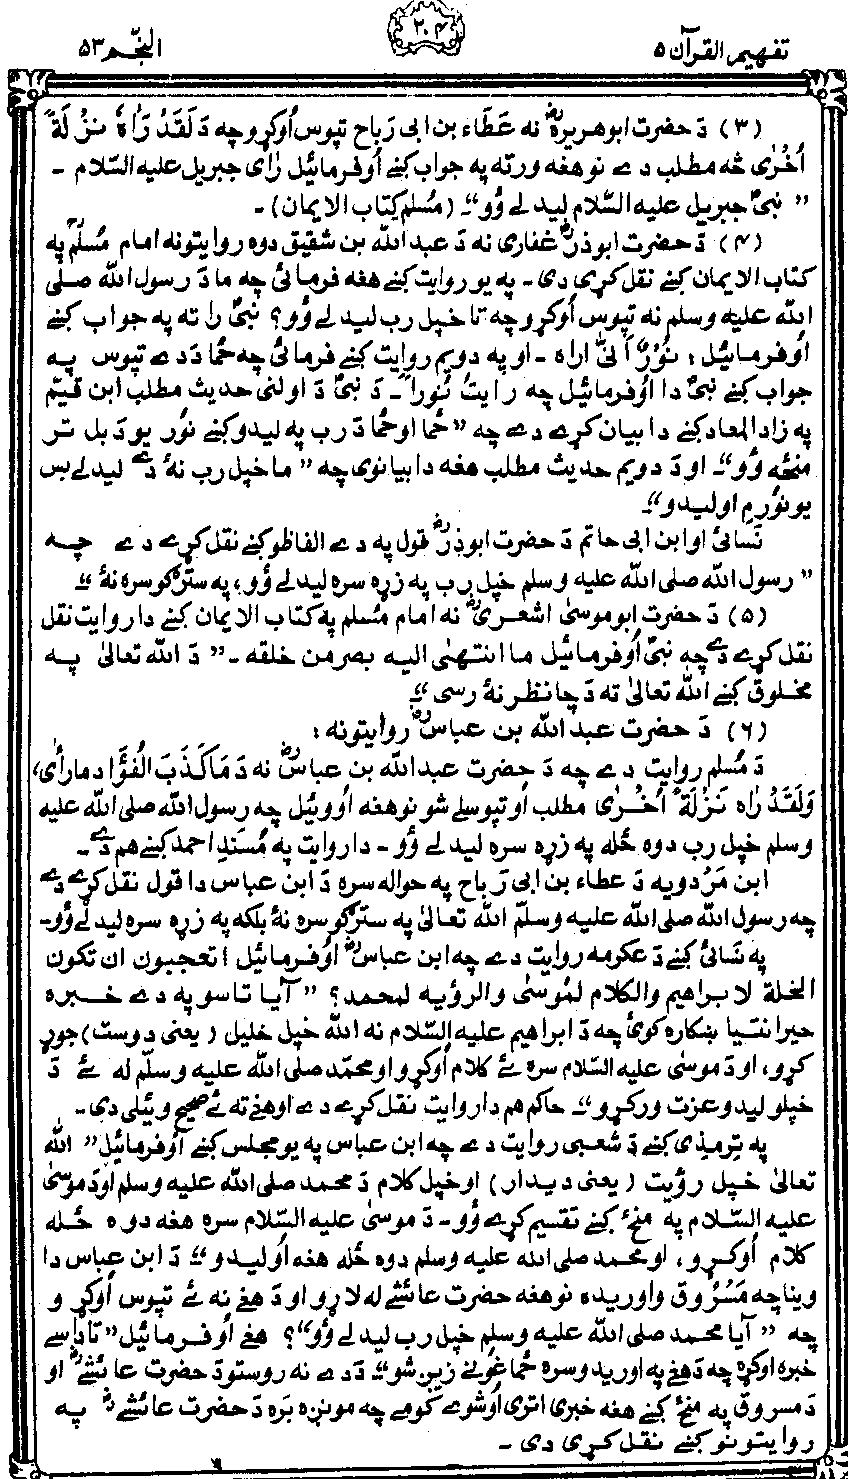 تفهيم القرآن ۵
۲۰۴
النجم ۵۳
(۳) دَ حضرت ابوهريره ؓ نه عَطَاء بن ابى رَباح تپوس اُوکړو چه دَ لَقَدْ رَاٰهُ نَزْلَةً
اُخْرٰى څه مطلب دے نو هغه ورته په جواب کښے اُوفرمائيل رَاٰى جبريل عليه السّلام ـ
” نبىؐ جبريل عليه السّلام ليدلے وُو“ـ (مُسلم کتاب الايمان) ـ
(۴) دَ حضرت ابوذرؓ غفارى نه دَ عبد الله بن شقيق دوه روايتونه امام مُسلمؒ په
کتاب الايمان کښے نقل کړى دى ـ په يو روايت کښے هغه فرمائى چه ما دَ رسول الله صلى
الله عليه وسلم نه تپوس اُوکړو چه تا خپل رب ليدلے وُو؟ نبىؐ را ته په جواب کښے
اُوفرمائيل : نُوْرٌ اَنّٰى اراه ـ او په دويم روايت کښے فرمائى چه ځما دَ دے تپوس په
جواب کښے نبىؐ دا اُوفرمائيل چه رايتُ نُوراً ـ دَ نبىؐ دَ اولنى حديث مطلب ابن قيّم
په زاد المعاد کښے دا بيان کړے دے چه ” ځما او ځما دَ رب په ليدو کښے نُور يو دَ بل تر
منځه وُو“ـ او دَ دويم حديث مطلب هغه دا بيانوى چه ” ما خپل رب نهٔ دے ليدلے بس
يو نُور مِ اوليدو“ـ
نَسائى او ابن ابى حاتم دَ حضرت ابوذرؓ قول په دے الفاظو کښے نقل کړے دے چه
” رسول الله صلى الله عليه وسلم خپل رب په زړه سره ليدلے وُو، په سترګو سره نهٔ“ـ
(۵) دَ حضرت ابو موسىٰ اشعرىؓ نه امام مُسلم په کتاب الايمان کښے دا روايت نقل
نقل کړے دے چه نبىؐ اُوفرمائيل ما انتهٰى اليه بصر من خلقه ـ ” دَ الله تعالىٰ په
مخلوق کښے الله تعالىٰ ته دَ چا نظر نهٔ رسى“ـ
(۶) دَ حضرت عبد الله بن عباسؓ روايتونه :
دَ مُسلم روايت دے چه دَ حضرت عبد الله بن عباسؓ نه دَ مَا کَذَبَ الْفُؤَادُ مَا رَاٰى،
وَلَقَدْ رَاٰه نَزْلَةً اُخْرٰى مطلب اُو تپوسلے شو نو هغه اُووئيل چه رسول الله صلى الله عليه
وسلم خپل رب دوه ځله په زړه سره ليدلے وُو ـ دا روايت په مُسندِ احمد کښے هم دے ـ
ابن مَردويه دَ عطاء بن ابى رَباح په حواله سره دَ ابن عباس دا قول نقل کړے دے
چه رسول الله صلى الله عليه وسلّم الله تعالىٰ په سترګو سره نهٔ بلکه په زړه سره ليدلے وُو ـ
په نَسائى کښے دَ عکرمه روايت دے چه ابن عباسؓ اُوفرمائيل اتعجبون ان تکون
الخلة لابراهيم والکلام لمُوسىٰ والرؤيه لمحمد؟ ” آيا تاسو په دے خبره
حيرانتيا ښکاره کوئ چه دَ ابراهيم عليه السّلام نه الله خپل خليل (يعنى دوست) جوړ
کړو، او دَ موسىٰ عليه السّلام سره ئے کلام اُوکړو او محمّد صلى الله عليه وسلّم له ئے دَ
خپلو ليدو عزت ورکړو“ـ حاکم هم دا روايت نقل کړے دے او هغے ته ئے صحيح وئيلى دى ـ
په ترمذى کښے دَ شعبى روايت دے چه ابن عباس په يو مجلس کښے اُوفرمائيل ” الله
تعالىٰ خپل رؤيت (يعنى ديدار) او خپل کلام دَ محمد صلى الله عليه وسلم او دَ موسىٰ
عليه السّلام په مَنځ کښے تقسيم کړے وُو ـ دَ موسىٰ عليه السّلام سره هغه دوه ځله
کلام اُوکړو، او محمد صلى الله عليه وسلم دوه ځله هغه اُوليدو“ـ دَ ابن عباس دا
وينا چه مَسرُوق واوريده نو هغه حضرت عائشے له لاړو او دَ هغے نه ئے تپوس اُوکړو
چه ” آيا محمد صلى الله عليه وسلم خپل رب ليدلے وُو“؟ هغے اُوفرمائيل ” تا داسے
خبره اوکړه چه دَ هغے په اوريدو سره ځما غُونے زيږ شو“ـ دَ دے نه روستو دَ حضرت عائشےؓ او
دَ مسروق په مَنځ کښے هغه خبرې اترې اُوشوے کومے چه مونږه بَره دَ حضرت عائشےؓ په
روايتونو کښے نقل کړى دى ـ